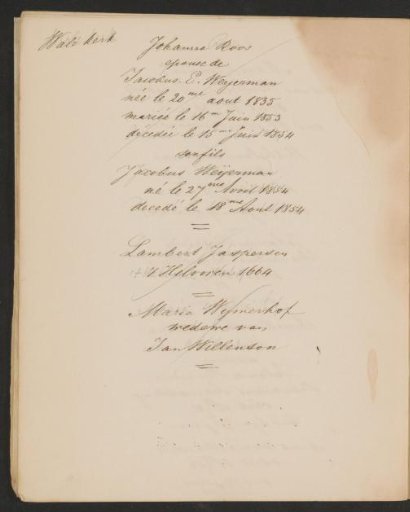 Wale kerk
Johanna Roos
epouse de
Jacobus E. Weyerman
née le 20me aout 1835
mariée le 16me Juin 1853
décedée le 15me Juin 1854
son fils
Jacobus Weijerman
né le 27me Avril 1854
decedé le 18me Aout 1854
Lambert Jaspersen
1664
Maria Weymerhof
wedewe van
Jan Willemson